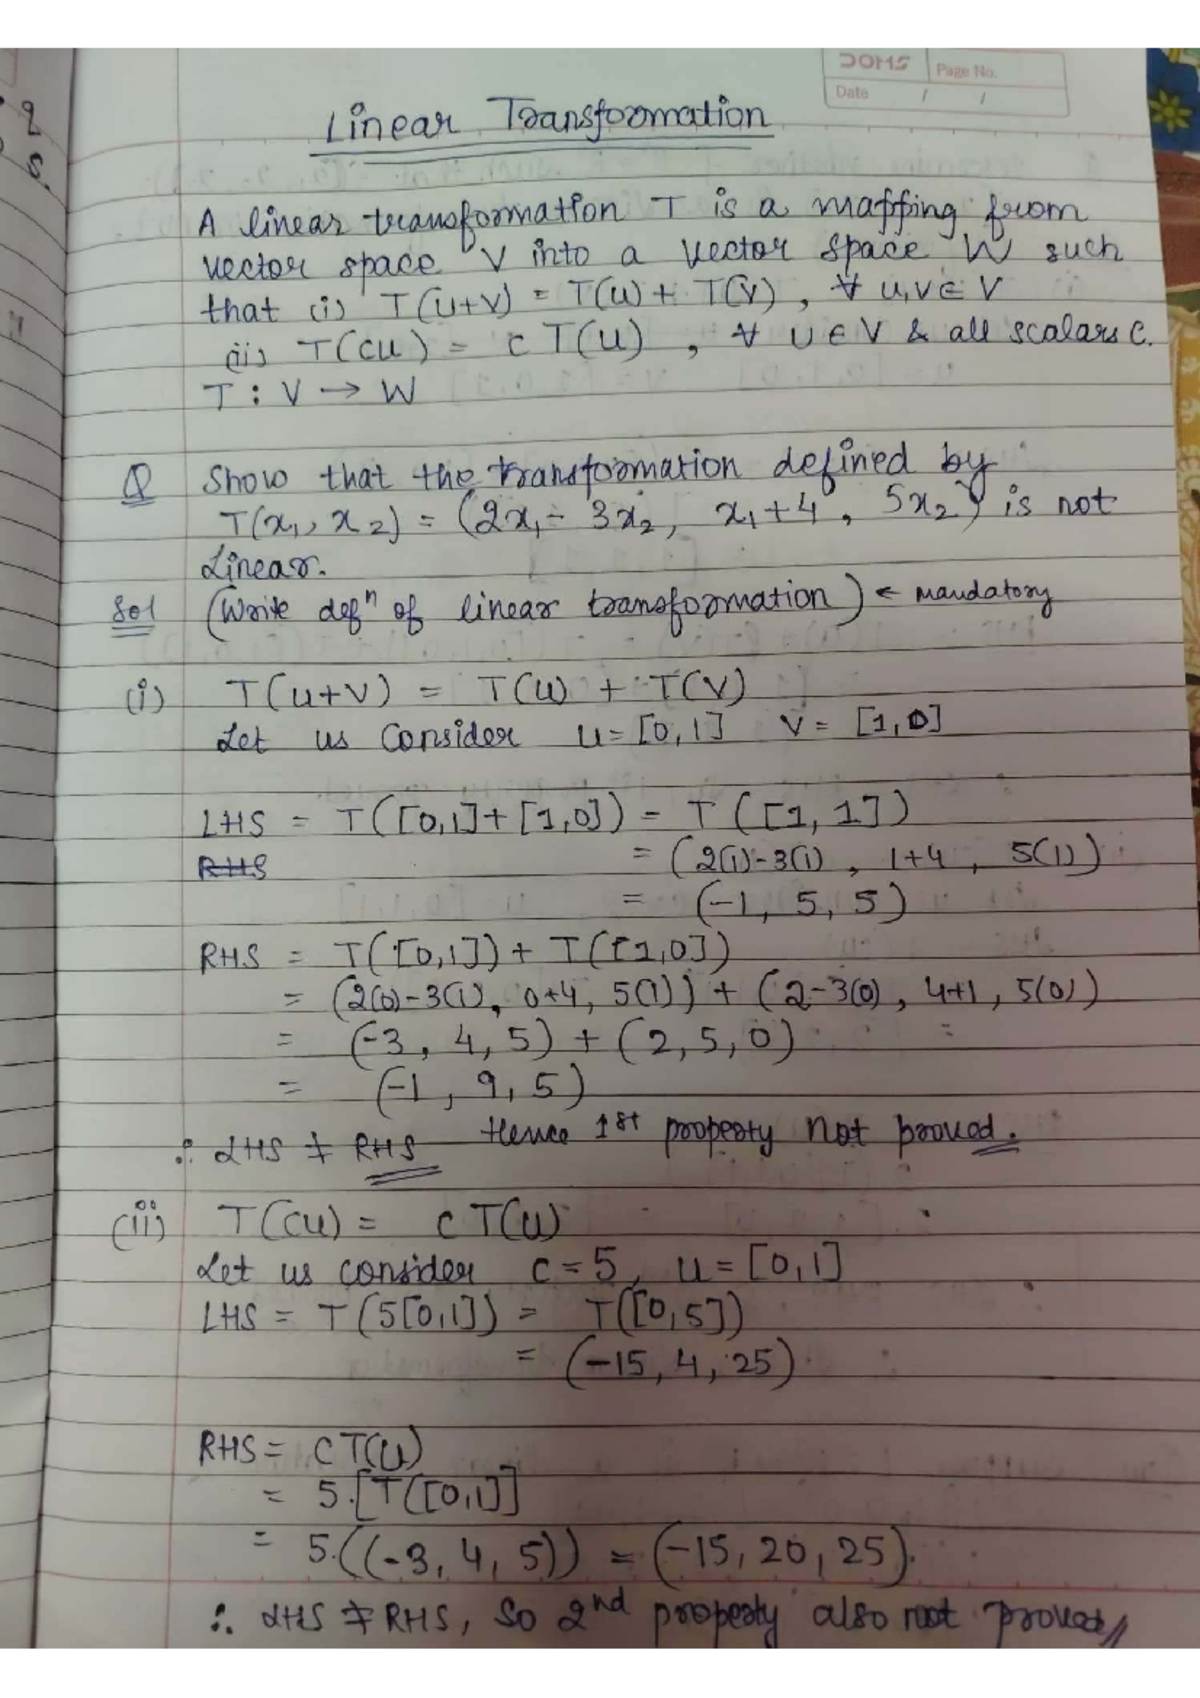 DOMS Page No.
Date / /
Linear Transformation
A linear transformation T is a mapping from
vector space V into a vector space W such
that (i) T(u+v) = T(u) + T(v) , ∀ u,v ∈ V
(ii) T(cu) = c T(u) , ∀ u ∈ V & all scalars c.
T : V → W
Q Show that the transformation defined by
T(x₁, x₂) = (2x₁ - 3x₂, x₁+4, 5x₂) is not
Linear.
Sol (Write defⁿ of linear transformation) ← mandatory
(i) T(u+v) = T(u) + T(v)
Let us consider u = [0,1] v = [1,0]
LHS = T([0,1]+[1,0]) = T([1,1])
RHS = (2(1)-3(1) , 1+4 , 5(1))
= (-1, 5, 5)
RHS = T([0,1]) + T([1,0])
= (2(0)-3(1), 0+4, 5(1)) + (2-3(0), 4+1, 5(0))
= (-3, 4, 5) + (2, 5, 0) =
= (-1, 9, 5)
∴ LHS ≠ RHS Hence 1st property not proved.
(ii) T(cu) = c T(u)
Let us consider c = 5, u = [0,1]
LHS = T(5[0,1]) = T([0,5])
= (-15, 4, 25)
RHS = cT(u)
= 5.[T([0,1]]
= 5.((-3, 4, 5)) = (-15, 20, 25).
∴ LHS ≠ RHS, So 2nd property also not proved//